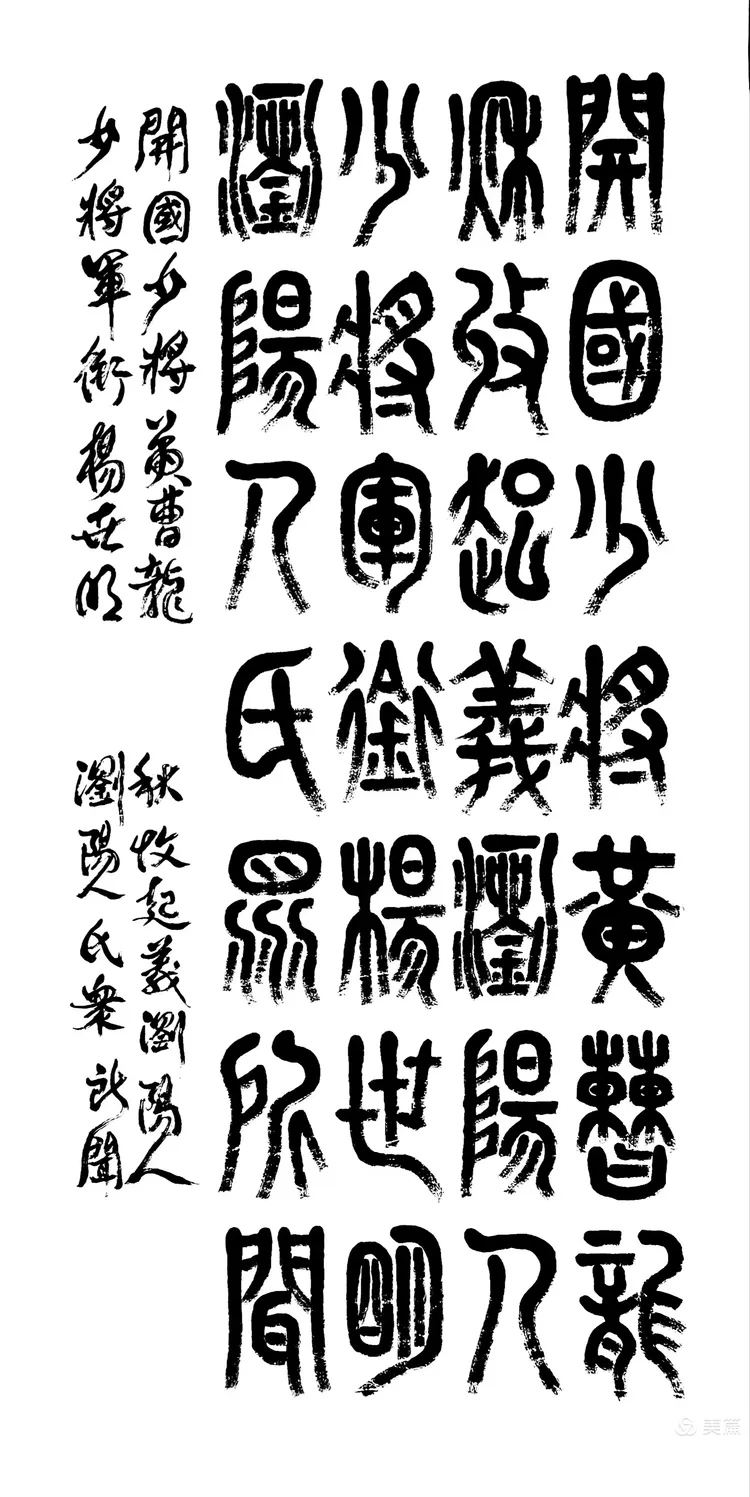 開國少將黃曹龍
秋收起義瀏陽人
少將軍銜楊世明
瀏陽人民眾所聞
開國少將黃曹龍
秋收起義瀏陽人
少將軍銜楊世明
瀏陽人民衆所聞
美篇